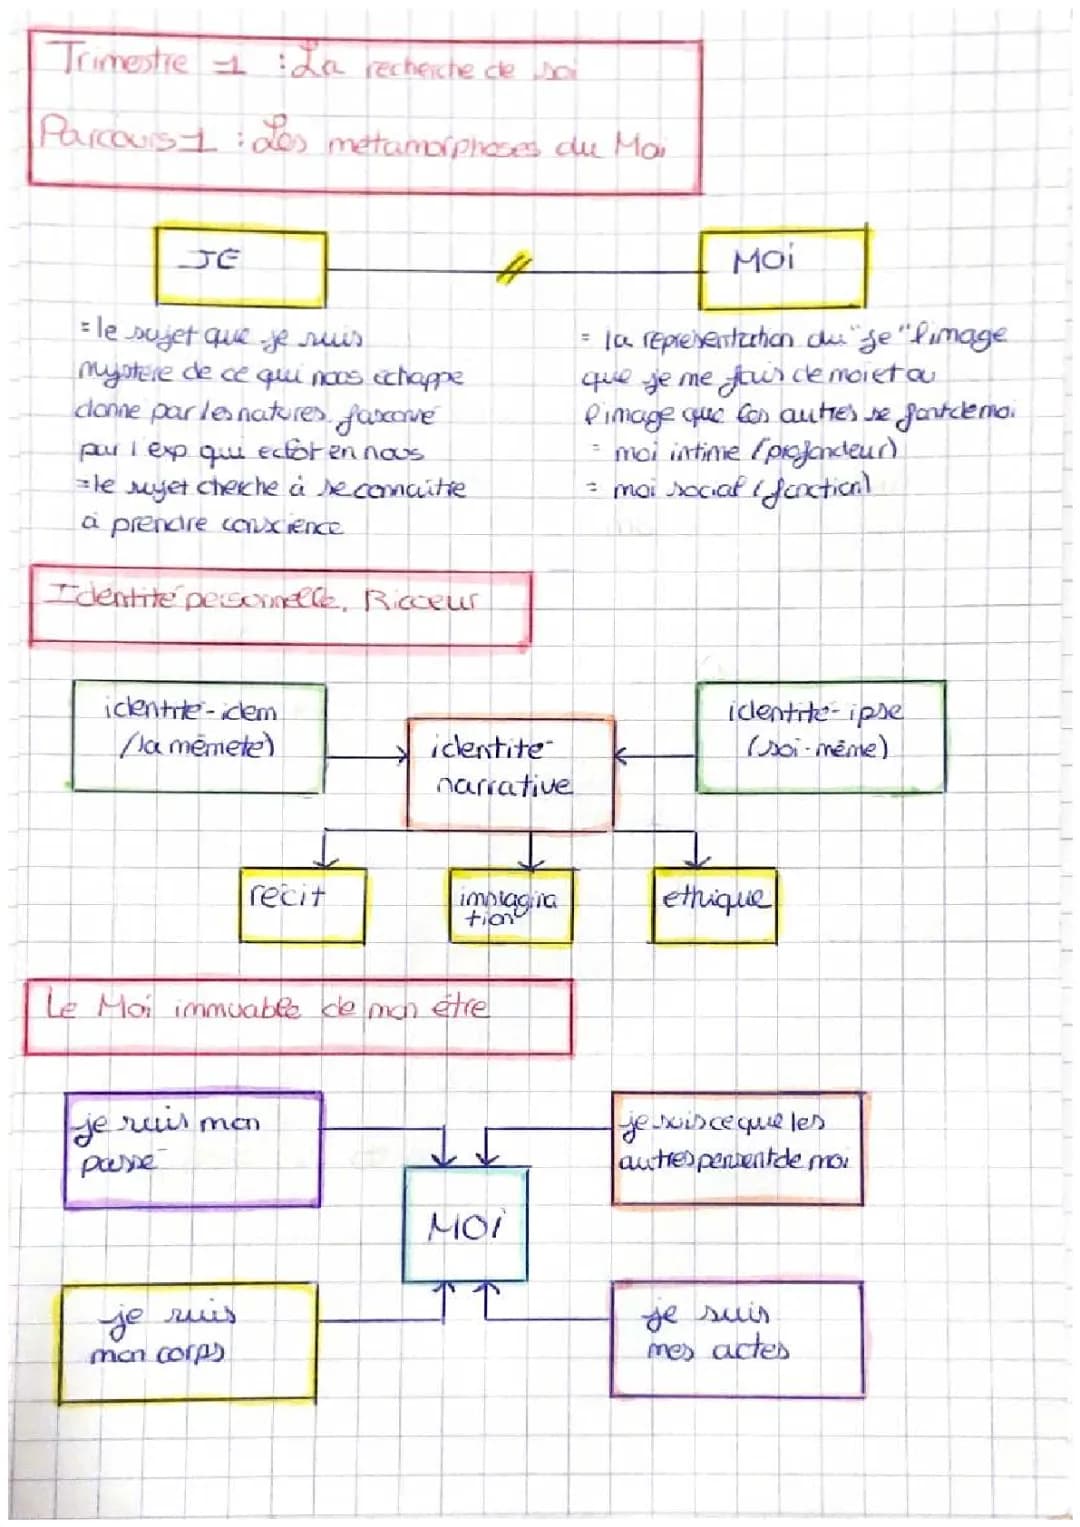 Trimestre 1 : La recherche de soi
Parcours 1 : Les métamorphoses du Moi
JE
Moi
= le sujet que je suis
mystère de ce qui nous échappe
donné par les natures, façonné
par l'exp qui eclot en nous
= le sujet cherche à se connaitre
à prendre conscience
= la représentation du "je" l'image
que je me fais de moi et ou
l'image que les autres se font de moi
= moi intime (profondeur)
= moi social (fonction)
Identité personnelle, Ricoeur
identité-idem
(la mêmeté)
identité-
narrative
identité-ipse
(soi-même)
récit
imagina
tion
ethique
Le Moi immuable de mon être
je suis mon
passé
je suis ce que les
autres pensent de moi
MOI
je suis
mon corps
je suis
mes actes